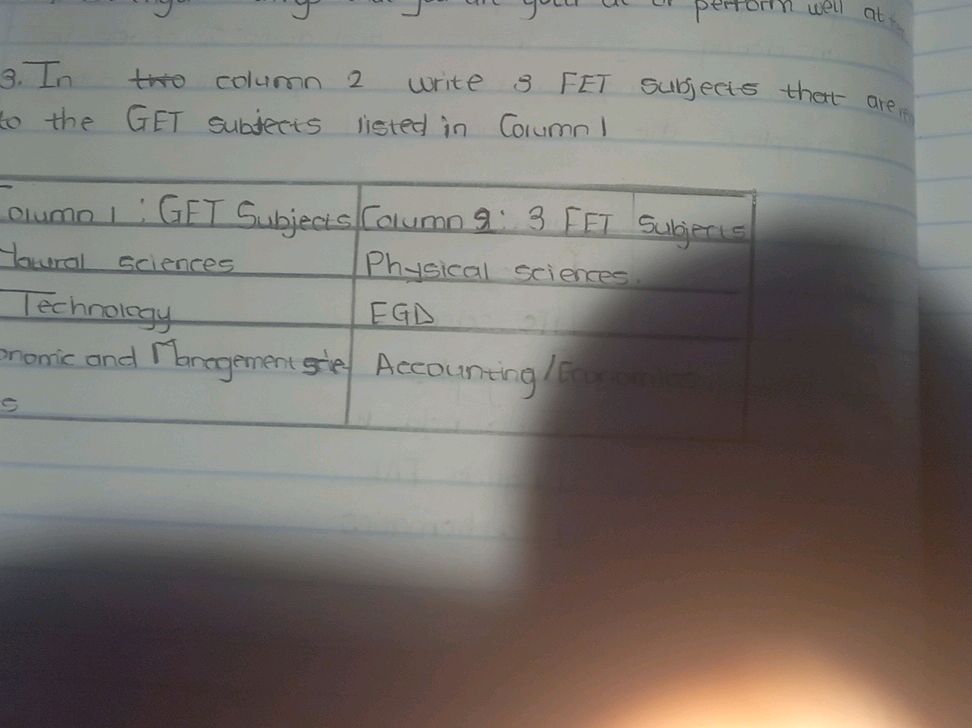 perform well at
3. In two column 2 write 3 FET subjects that are
to the GET subjects listed in Column 1
Column 1 : GET Subjects Column 2: 3 FET Subjects
sciences Physical sciences.
Technology EGD
onomic and Management scie Accounting/Economics
s